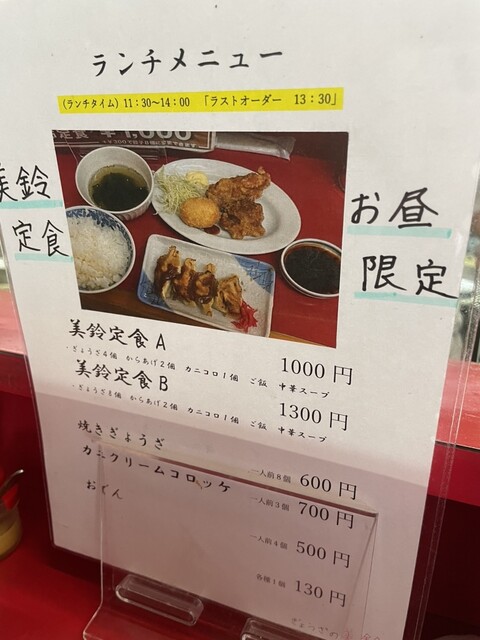 ランチメニュー
(ランチタイム) 11:30～14:00 「ラストオーダー 13:30」
美鈴
定食
お昼
限定
定食 ¥1,000
美鈴定食A 1000円
・ぎょうざ4個 からあげ2個 カニコロ1個 ご飯 中華スープ
美鈴定食B 1300円
・ぎょうざ8個 からあげ2個 カニコロ1個 ご飯 中華スープ
焼きぎょうざ 一人前8個 600円
カニクリームコロッケ 一人前3個 700円
一人前4個 500円
おでん 各種1個 130円
ぎょうざの